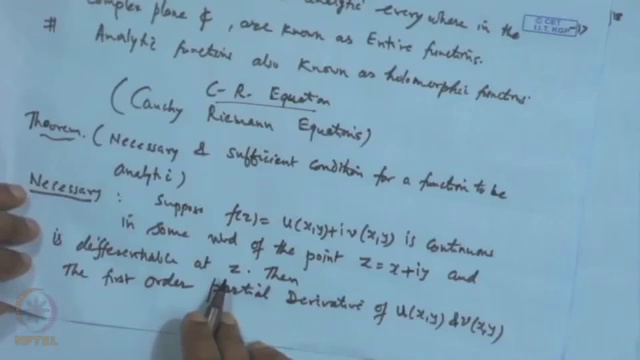 analytic everywhere in the
complex plane ₵, are known as Entire functions.
# Analytic functions also known as holomorphic functions.
C-R. Equation
(Cauchy Riemann Equations)
Theorem. (Necessary & sufficient condition for a function to be
analytic)
Necessary : Suppose f(z) = u(x,y)+iv(x,y) is continuous
in some nbd of the point z = x+iy and
is differentiable at z. Then
The first order partial Derivative of u(x,y) & v(x,y)
© CET
I.I.T. KGP
NPTEL